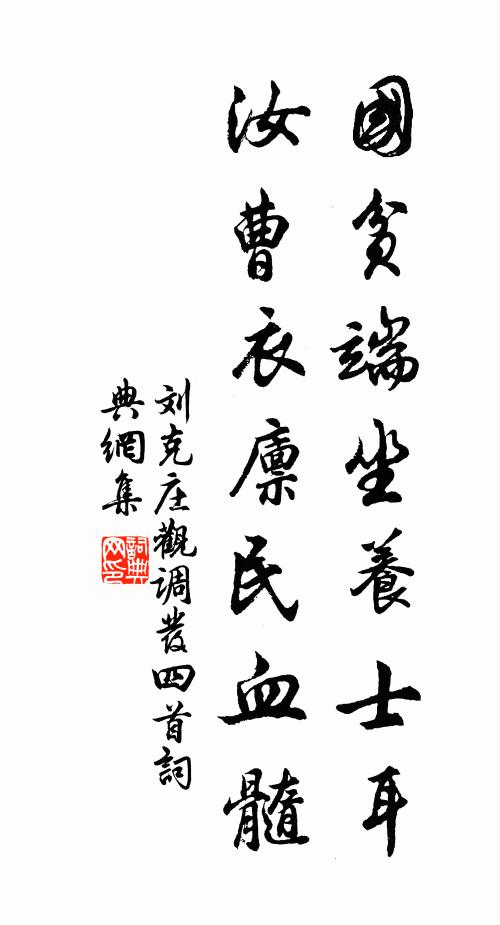 國貧端坐養士耳
汝曹衣廪民血髓
刘克庄觀调發四首詞
典網集
詞典网印